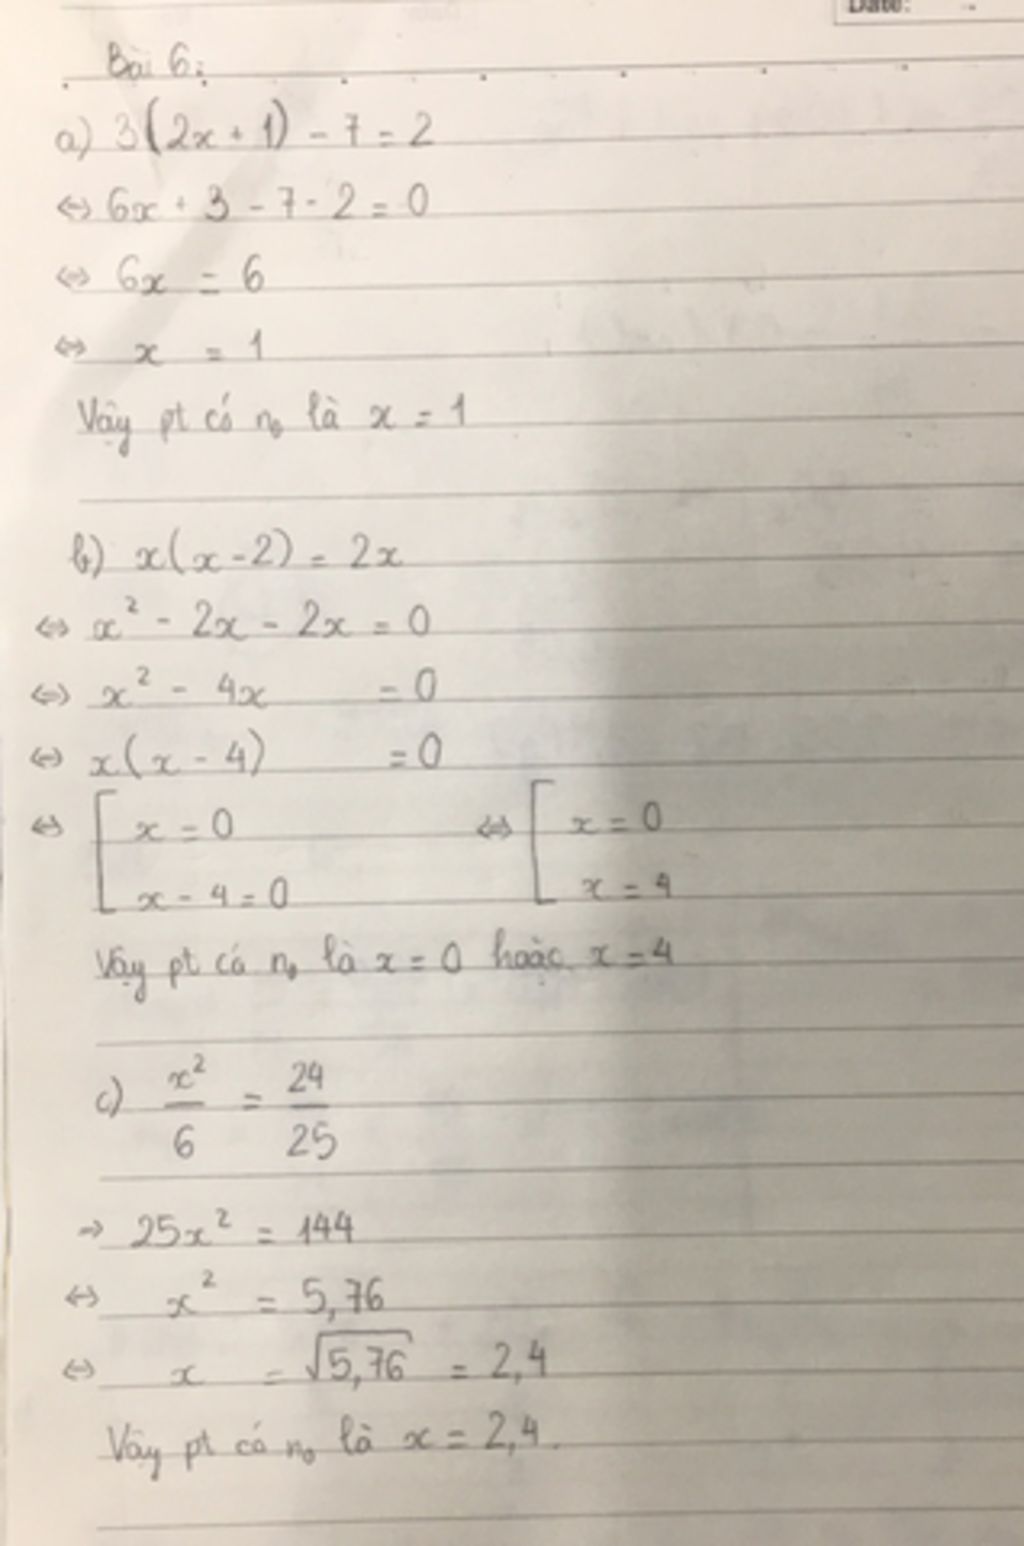 Date:
Bài 6:
a) 3(2x + 1) - 7 = 2
⇔ 6x + 3 - 7 - 2 = 0
⇔ 6x = 6
⇔ x = 1
Vậy pt có n₀ là x = 1
b) x(x - 2) = 2x
⇔ x² - 2x - 2x = 0
⇔ x² - 4x = 0
⇔ x(x - 4) = 0
⇔ [ x = 0 ⇔ [ x = 0
x - 4 = 0 x = 4
Vậy pt có n₀ là x = 0 hoặc x = 4
c) x²/6 = 24/25
→ 25x² = 144
⇔ x² = 5,76
⇔ x = √5,76 = 2,4
Vậy pt có n₀ là x = 2,4.